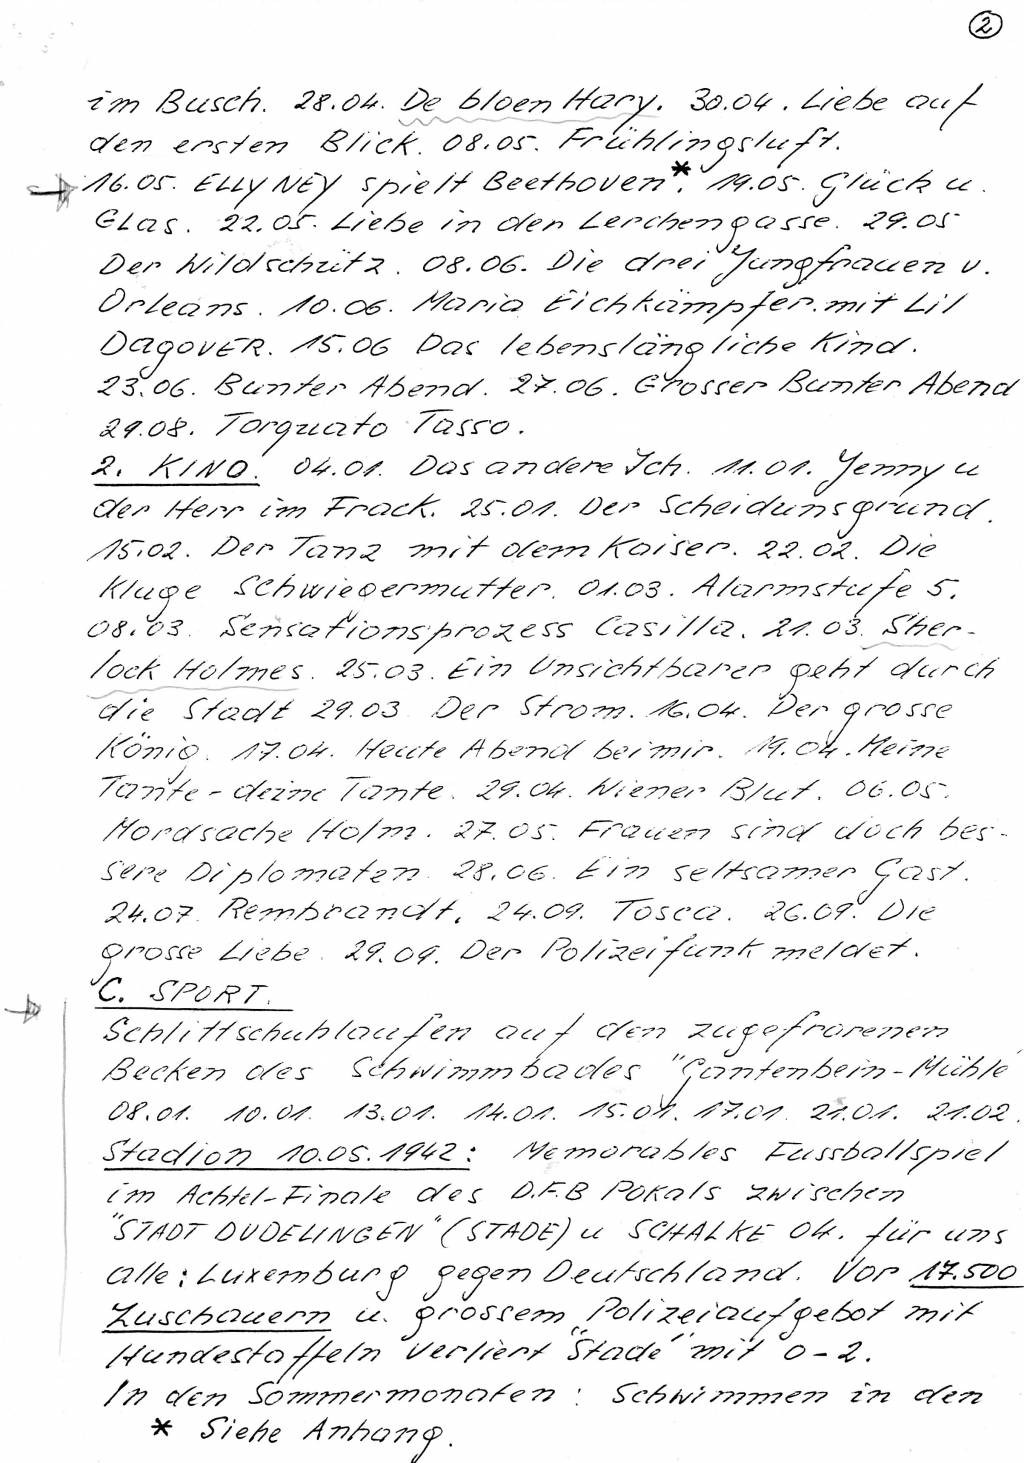 2
im Busch. 28.04. De bloen Hary. 30.04. Liebe auf
den ersten Blick. 08.05. Frühlingsluft.
16.05. ELLY NEY spielt Beethoven*. 19.05. Glück u.
Glas. 22.05. Liebe in der Lerchengasse. 29.05
Der Wildschütz. 08.06. Die drei Jungfrauen v.
Orleans. 10.06. Maria Eichkämpfer. mit Lil
DagovER. 15.06 Das lebenslängliche Kind.
23.06. Bunter Abend. 27.06. Grosser Bunter Abend
29.08. Torquato Tasso.
2. KINO. 04.01. Das andere Ich. 11.01. Jenny u
der Herr im Frack. 25.01. Der Scheidunsgrund.
15.02. Der Tanz mit dem Kaiser. 22.02. Die
Kluge Schwiegermutter. 01.03. Alarmstufe 5.
08.03. Sensationsprozess Casilla. 21.03. Sher-
lock Holmes. 25.03. Ein Unsichtbarer geht durch
die Stadt 29.03. Der Strom. 16.04. Der grosse
König. 17.04. Heute Abend bei mir. 19.04. Meine
Tante - deine Tante. 29.04. Wiener Blut. 06.05.
Mordsache Holm. 27.05. Frauen sind doch bes-
sere Diplomaten. 28.06. Ein seltsamer Gast.
24.07. Rembrandt. 24.09. Tosca. 26.09. Die
grosse Liebe. 29.09. Der Polizeifunk meldet.
C. SPORT.
Schlittschuhlaufen auf den zugefrorenen
Becken des Schwimmbades "Gantenbein-Mühle"
08.01. 10.01. 13.01. 14.01. 15.01. 17.01. 21.01. 21.02.
Stadion 10.05.1942: Memorables Fussballspiel
im Achtel-Finale des D.F.B Pokals zwischen
"STADT DUDELINGEN" (STADE) u SCHALKE 04. für uns
alle: Luxemburg gegen Deutschland. Vor 17.500
Zuschauern u. grossem Polizeiaufgebot mit
Hundestaffeln verliert "Stade" mit 0-2.
In den Sommermonaten: Schwimmen in den
* Siehe Anhang.